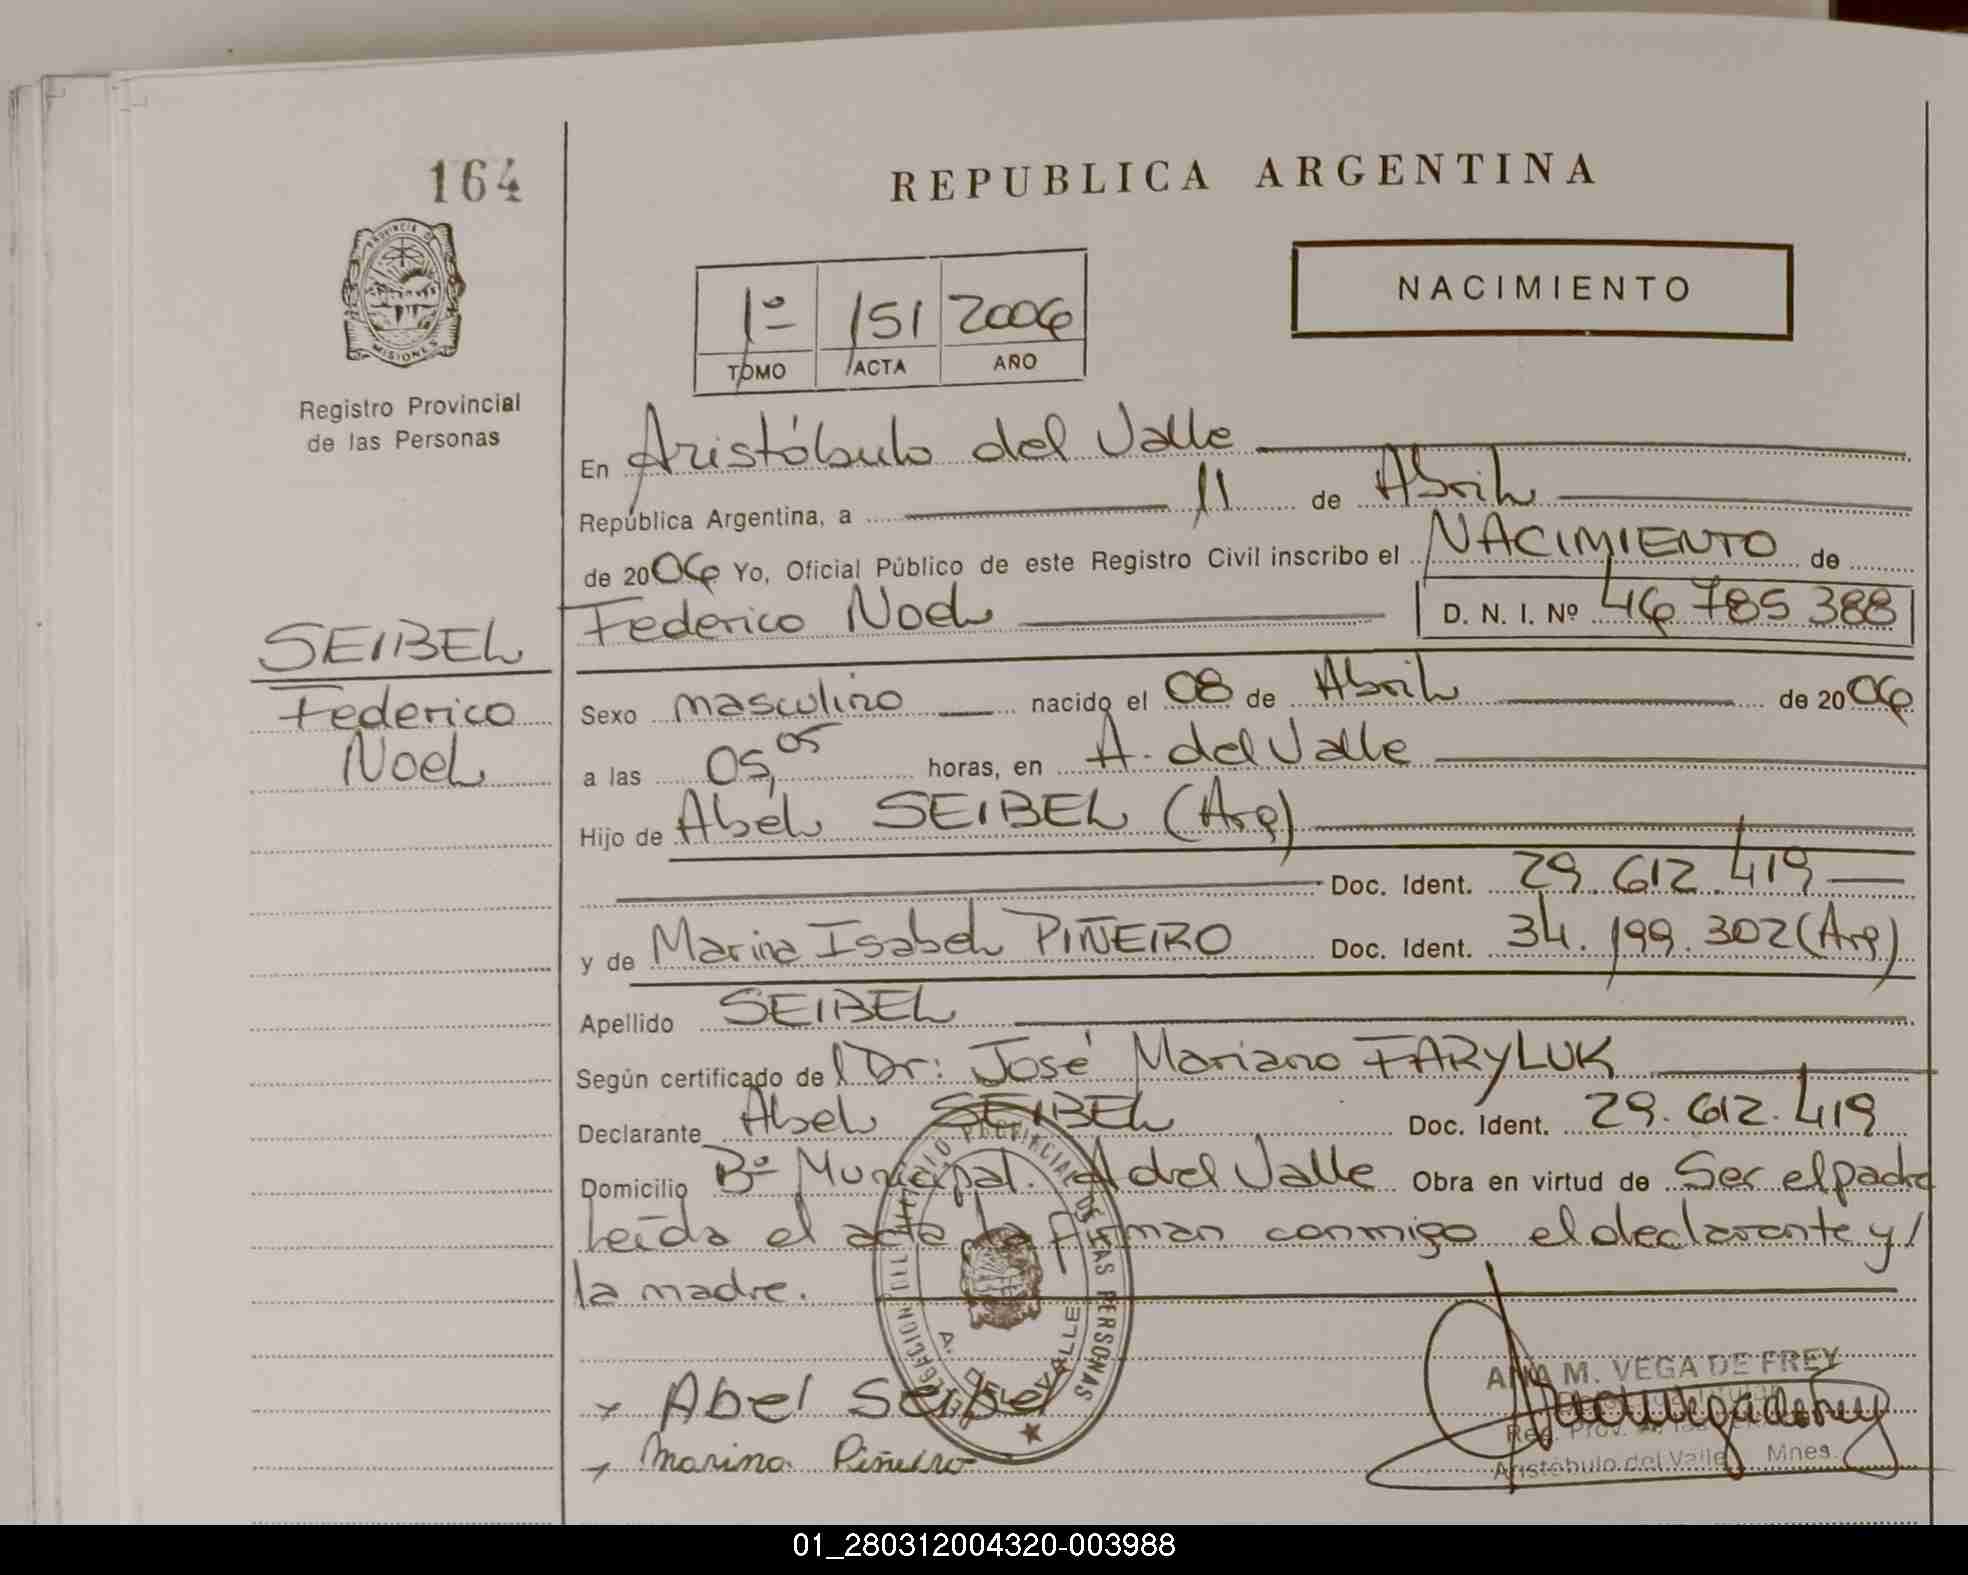 164
REPUBLICA ARGENTINA
PROVINCIA D
MISIONES
Registro Provincial
de las Personas
NACIMIENTO
1º 151 2006
TOMO ACTA AÑO
En Aristóbulo del Valle
República Argentina, a 11 de Abril
de 2006 Yo, Oficial Público de este Registro Civil inscribo el NACIMIENTO de
Federico Noel D. N. I. Nº 46 785 388
SEIBEL
Federico
Noel
Sexo masculino nacido el 08 de Abril de 2006
a las 05,05 horas, en A. del Valle
Hijo de Abel SEIBEL (Arg)
Doc. Ident. 29.612.419
y de Marina Isabel PIÑEIRO Doc. Ident. 34.199.302 (Arg)
Apellido SEIBEL
Según certificado del Dr: José Mariano FARYLUK
Declarante Abel SEIBEL Doc. Ident. 29.612.419
Domicilio Bº Municipal. A del Valle Obra en virtud de Ser el padre
Leída el acta la firman conmigo el declarante y/
la madre.
DELEGACION DEL REGISTRO PROVINCIAL DE LAS PERSONAS
A. DEL VALLE
Abel Seibel
Marina Piñeiro
ANA M. VEGA DE FREY
Reg. Prov. de las
Aristóbulo del Valle Mnes.
01_280312004320-003988